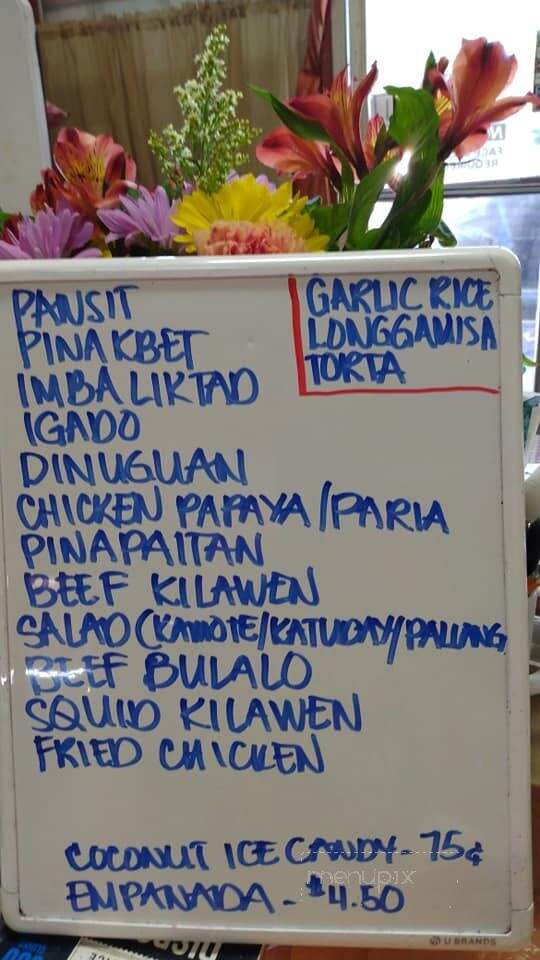 PANSIT
PINAKBET
IMBALIKTAD
IGADO
DINUGUAN
CHICKEN PAPAYA/PARIA
PINAPAITAN
BEEF KILAWEN
SALAD (KAMOTE/KATUDAY/PALLANG
BEEF BULALO
SQUID KILAWEN
FRIED CHICKEN
GARLIC RICE
LONGGANISA
TORTA
COCONUT ICE CANDY - 75¢
EMPANADA - $4.50
menupix
U BRANDS